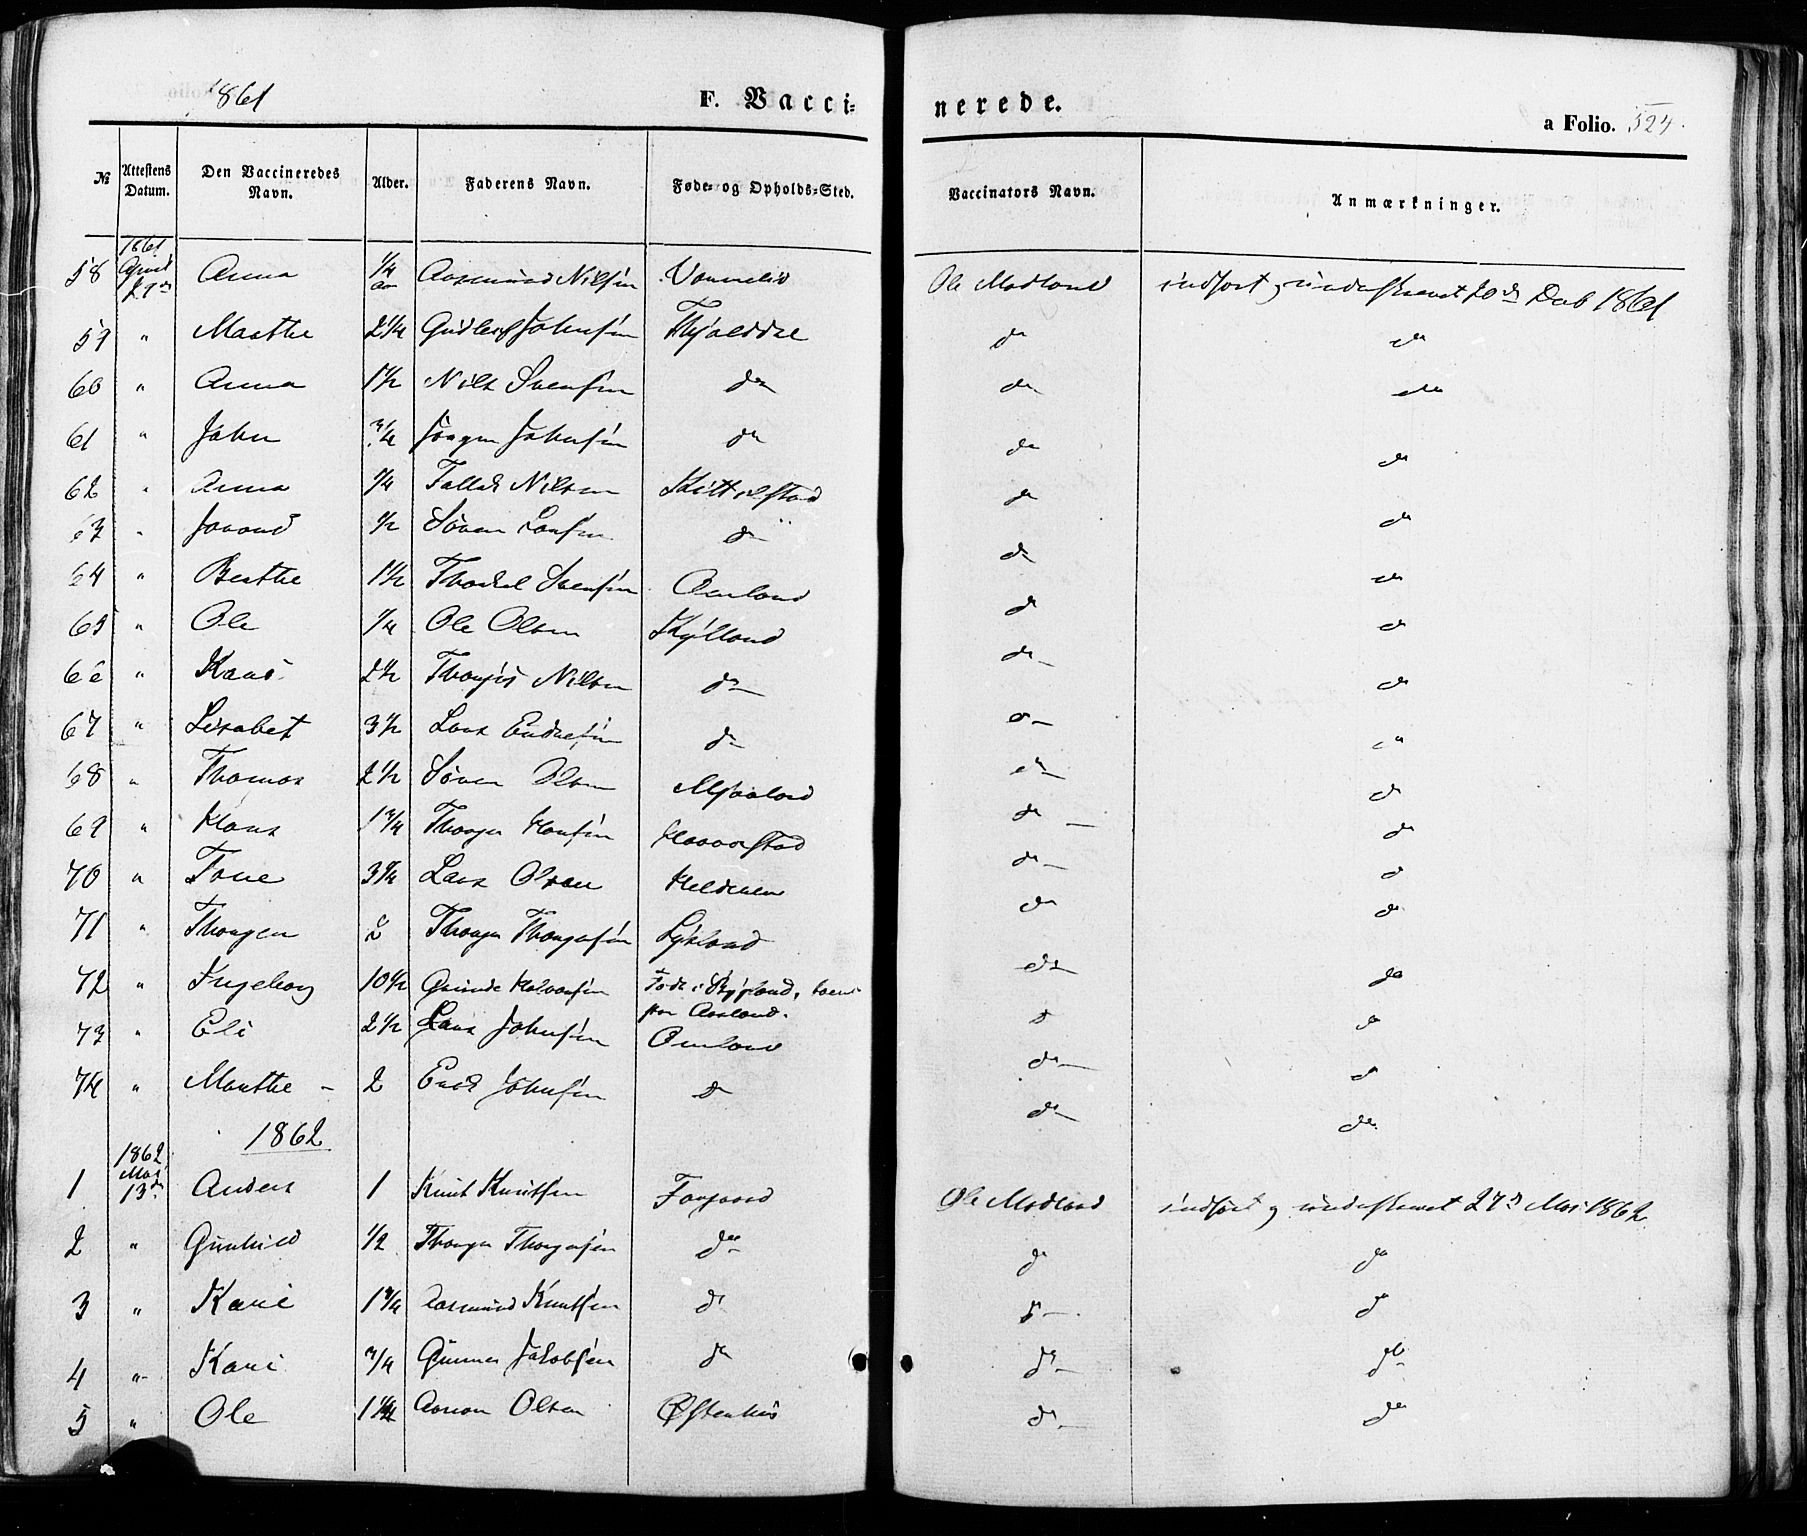 1861
F. Vacci=
nerede.
a Folio. 524.
№ Attestens Datum. Den Vaccineredes Navn. Alder. Faderens Navn. Føde- og Opholds-Sted. Vaccinators Navn. Anmærkninger.
1861
58 April 29de Anna 1/4 aar Aasmund Nilsen Ole Modland indført 20de Deb 1861
59 " Marthe 2 1/4 Gudleif Johnsen do do
60 " Anna 1 1/2 Nils Svensen do do do
61 " John 3/4 Jørgen Johnsen do do do
62 " Anna 1/4 Tallak Nilsen Kittelstad do do
63 " 1/2 Søren do do do
64 " Berthe 1 1/2 Thorkel Svensen Aamland do do
65 " Ole 1/4 Ole Olsen Kylland do do
66 " Kari 2 1/2 Nilsen do do do
67 " Lisabet 3 1/2 Lars Endresen do do do
68 " Thomas 2 1/2 Søren Olsen do do
69 " Hans 1 3/4 Thorger Hansen Haavorstad do do
70 " Tone 3 3/4 Lars Olsen do do
71 " Thorger 2 Thorger Thorgersen Lykland do do
72 " Ingeborg 10 1/2 Gunde Halvorsen Født i Bygland, do do
Aasland.
73 " Eli 2 1/2 Lars Johnsen Aamland do do
74 " Marthe - 2 Erik Johnsen do do do
1862
1862
1 Mai 13de Anders 1 Knut Knutsen Faagaard Ole Modland indført 27de Mai 1862
2 " Gunhild 1/2 Thorger Thorgersen do do do
3 " Kari 1 3/4 Aasmund Knutsen do do do
4 " Kari 3/4 Gunner Jakobsen do do do
5 " Ole Aanon Olsen Østenhus do do